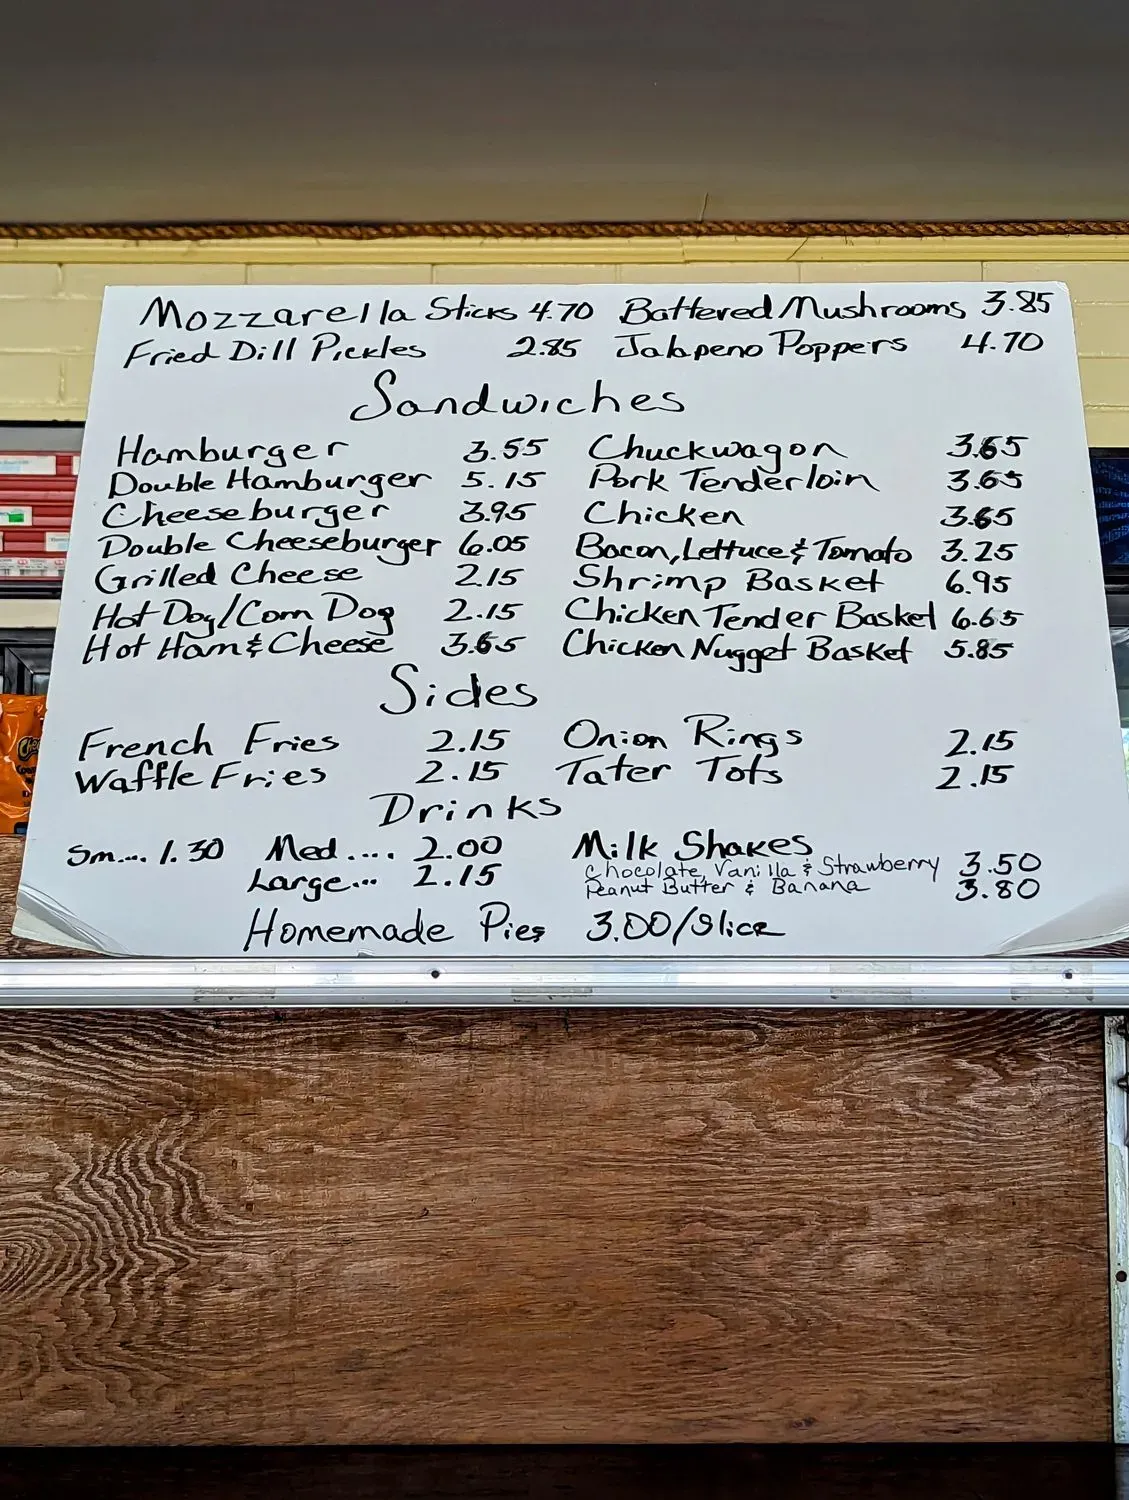 Mozzarella Sticks 4.70 Battered Mushrooms 3.85
Fried Dill Pickles 2.85 Jalapeno Poppers 4.70
Sandwiches
Hamburger 3.55 Chuckwagon 3.65
Double Hamburger 5.15 Pork Tenderloin 3.65
Cheeseburger 3.95 Chicken 3.65
Double Cheeseburger 6.05 Bacon, Lettuce & Tomato 3.25
Grilled Cheese 2.15 Shrimp Basket 6.95
Hot Dog/Corn Dog 2.15 Chicken Tender Basket 6.65
Hot Ham & Cheese 3.65 Chicken Nugget Basket 5.85
Sides
French Fries 2.15 Onion Rings 2.15
Waffle Fries 2.15 Tater Tots 2.15
Drinks
Sm.... 1.30 Med.... 2.00 Milk Shakes
Chocolate, Vanilla & Strawberry 3.50
Large... 2.15 Peanut Butter & Banana 3.80
Homemade Pies 3.00/Slice